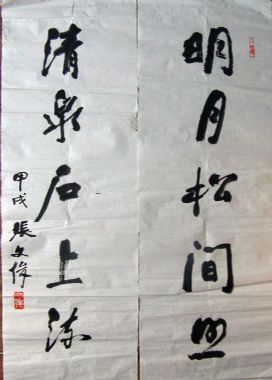 明月松间照
清泉石上流
甲戌 張文偉